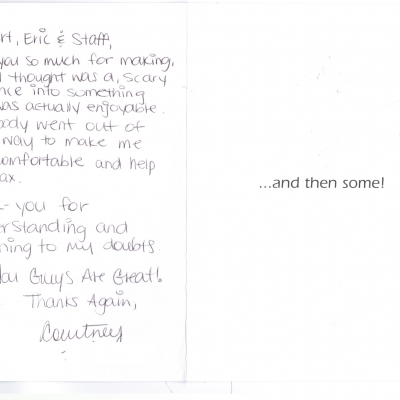 rt, Eric & Staff,
you so much for making.
I thought was a, scary
nce into something
was actually enjoyable.
body went out of
way to make me
omfortable and help
ax.
- you for
rstanding and
ning to my doubts.
You Guys Are Great!
Thanks Again,
Courtney
...and then some!